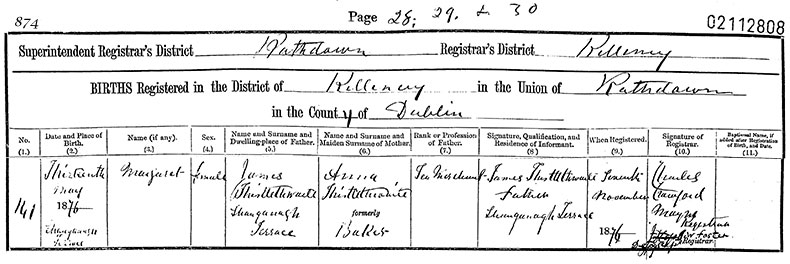 874
Page 28, 29, & 30
02112808
Superintendent Registrar's District Rathdown Registrar's District Killiney
BIRTHS Registered in the District of Killiney in the Union of Rathdown
in the County of Dublin
No. (1.)
Date and Place of Birth. (2.)
Name (if any). (3.)
Sex. (4.)
Name and Surname and Dwelling-place of Father. (5.)
Name and Surname and Maiden Surname of Mother. (6.)
Rank or Profession of Father. (7.)
Signature, Qualification, and Residence of Informant. (8)
When Registered. (9.)
Signature of Registrar. (10.)
Baptismal Name, if added after Registration of Birth, and Date. (11.)
141
Thirteenth
May
1876
Shanganagh
Terrace
Margaret
female
James
Thistlethwaite
Shanganagh
Terrace
Anna
Thistlethwaite
formerly
Baker
Tea Merchant
James Thistlethwaite
Father
Shanganagh Terrace
November
1876
Charles
Crawford
Mayne
Registrar
Foster
Registrar.